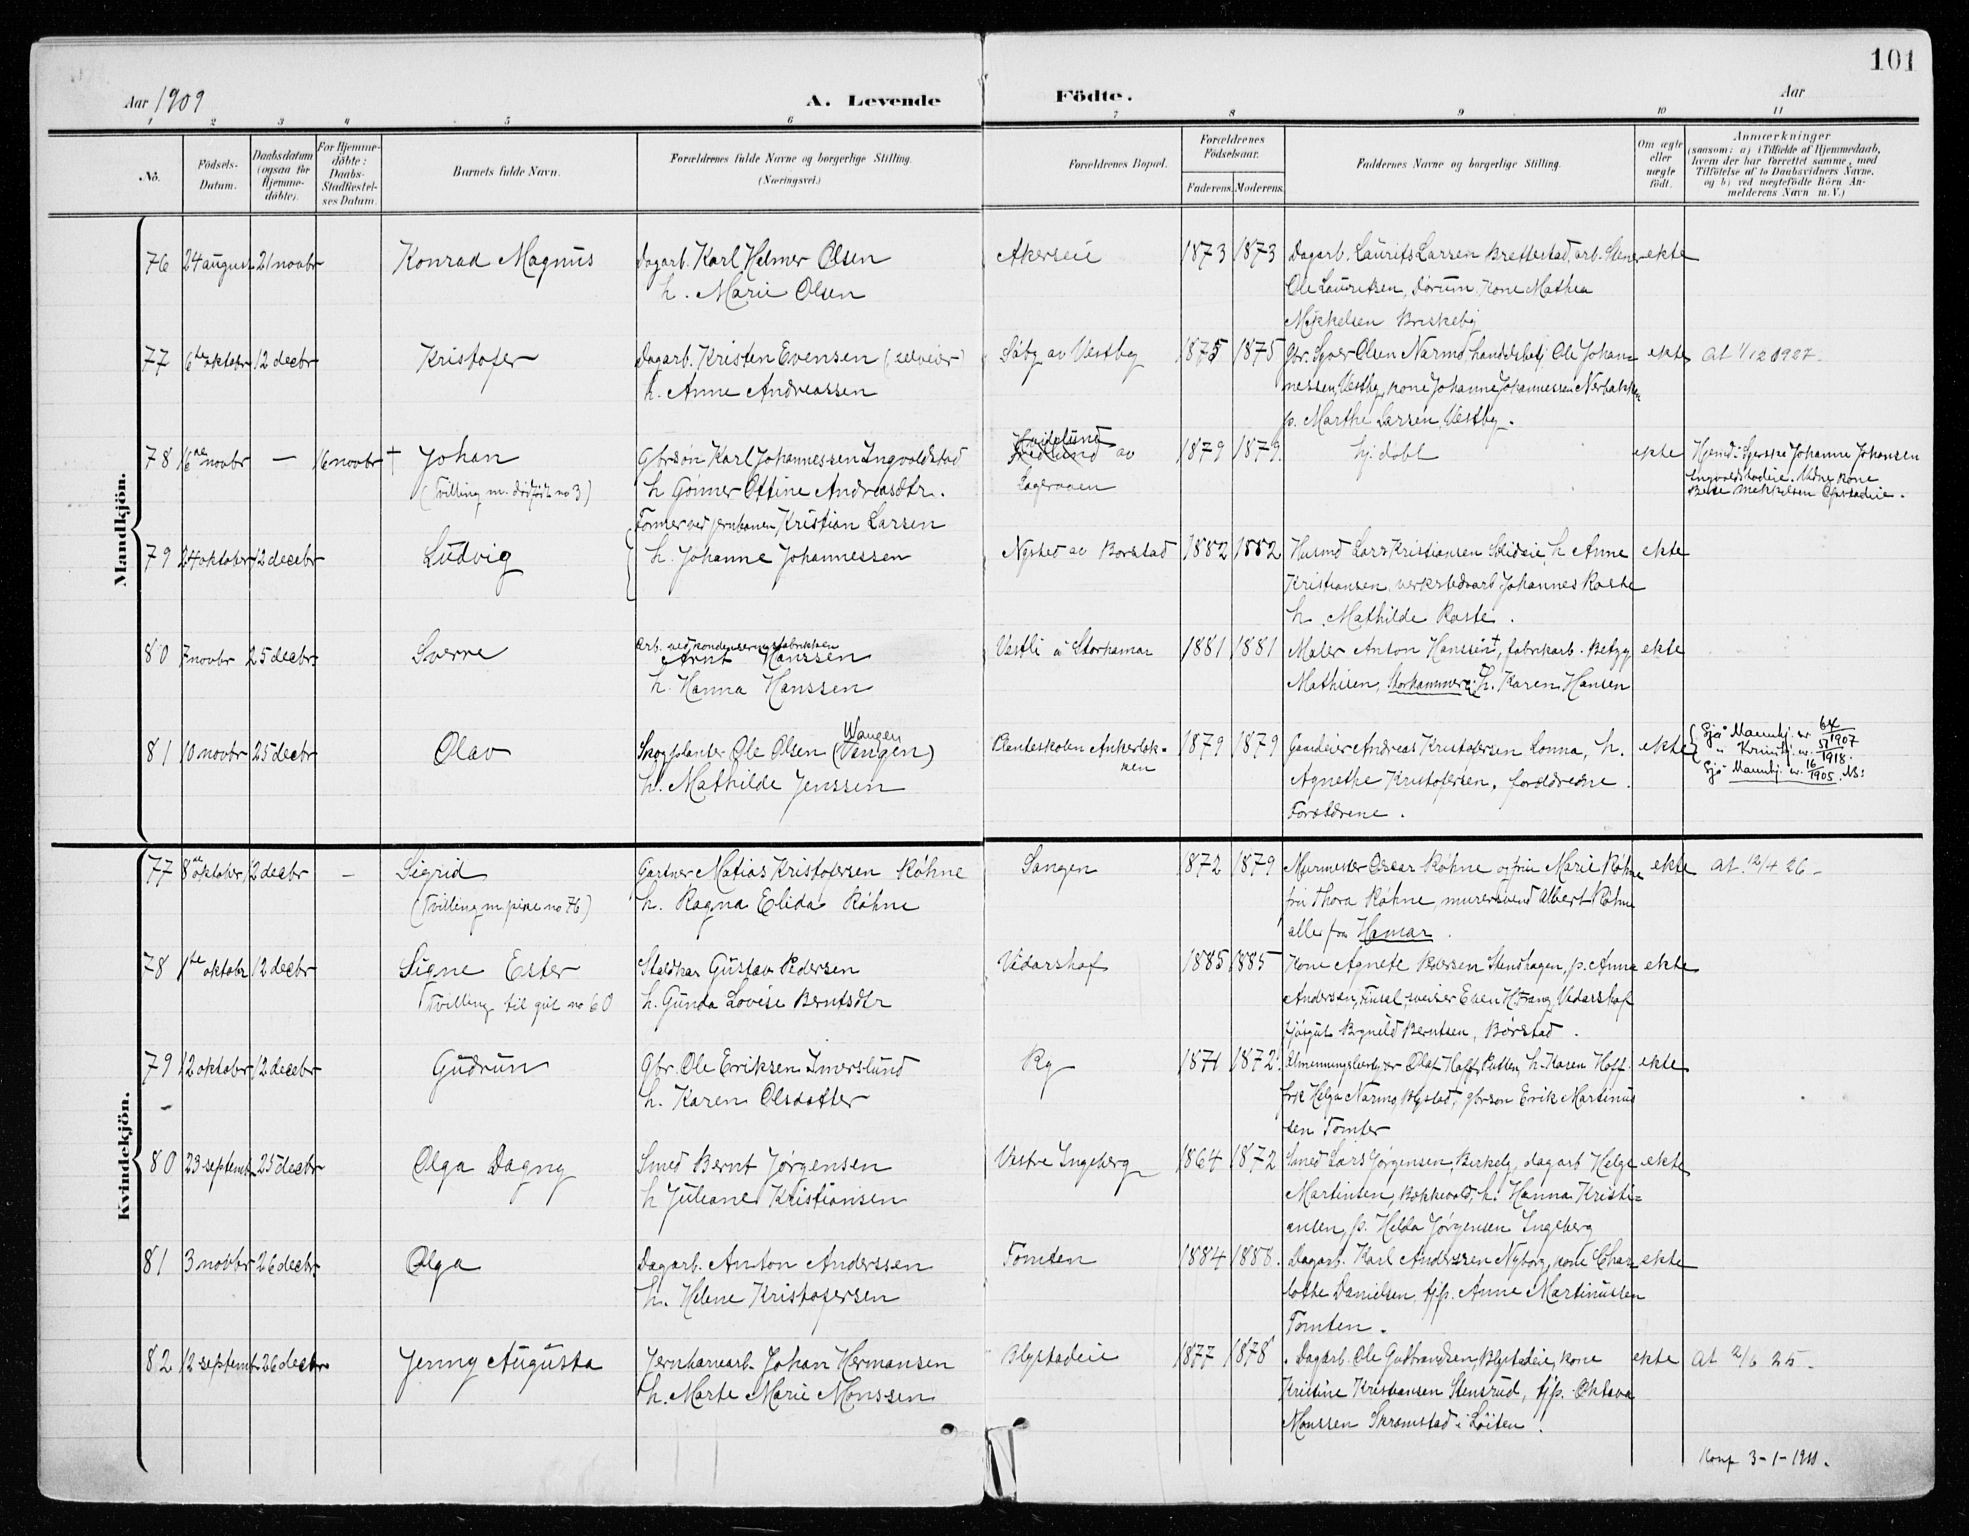 101
Aar 1909
A. Levende
Födte.
Aar
1 2 3 4 5 6 7 8 9 10 11
No.
Födsels-
Datum.
Daabsdatum
(ogsaa for
Hjemme-
döbte).
For Hjemme-
döbte:
Daabs-
Stadfæstel-
ses Datum.
Barnets fulde Navn.
Forældrenes fulde Navne og borgerlige Stilling.
(Næringsvei.)
Forældrenes Bopæl.
Forældrenes
Födselsaar.
Faderens. Moderens.
Faddernes Navne og borgerlige Stilling.
Om ægte
eller
uægte
født.
Anmærkninger
(saasom: a) i Tilfælde af Hjemmedaab,
hvem der har forrettet samme, med
Tilføielse af to Daabsvidners Navne,
og b) ved uægtefödte Börn An-
melderens Navn m. V.)
Mandkjön.
76 24 august 21 novbr Konrad Magnus
Dagarb. Karl Helmer Olsen
h. Marie Olsen
Akerseie 1873 1873
Dagarb. Laurits Larsen Brettestad, arb. Stener
Ole Lauritsen, Dørum. Kone Mathea
Mikkelsen Briskeby
ekte
77 6te oktobr 12 decbr Kristofer
Dagarb. Kristen Evensen (selveier)
h. Anne Andreassen
Såby av Vestby 1875 1875
Gbr. Syver Olsen Narmo, handelsbetj. Ole Johan-
nessen, Vestby, kone Johanne Johannessen Nerbakken
p. Marthe Larsen, Vestby.
ekte At 1/12 1927.
78 16de novbr — 16 novbr † Johan
(Tvilling m. dødfødt no 3)
Gbrsøn Karl Johannessen Ingvoldstad
h Gunner Ottine Andreasdtr.
Hvidelund av
Lageraaen
1879 1879.
hj. døbt
ekte
Hjemd: Gjerske Johanne Johansen
Ingvoldstadeie. Vidne kone
Berte Mikkelsen Opsadeie.
79 24 oktobr 12 decebr Ludvig
Former ved jernhanen Kristian Larsen
h. Johanne Johannessen
Nysted av Borstad 1882 1882
Husmd Lars Kristiansen Skideie, h. Anne
Kristiansen, verkstedsarb Johannes Raste
h. Mathilde Raste.
ekte
80 7 novbr 25 decbr. Sverre
Arb. ved kondenseringsfabrikken
Arnt Hanssen
h. Hanna Hanssen
Vestli u Storhamar 1881 1881
Maler Anton Hanssen, fabrikarb. Betzy
Mathisen, Storhammer, h. Karen Hansen
ekte
81 10 novbr 25 decbr Olav
Wangen
Skogplanter Ole Olsen (Vengen)
h. Mathilde Jenssen
Planteskolen Ankerlok-
ken
1879 1879
Gaardeier Andreas Kristofersen Lonna, h.
Agnethe Kristofersen, foreldrene.
Forældrene.
ekte
Sjå Mannkj. nr 64/1907
" Kvinnkj. nr. 51/1918.
Sjå Mannkj. nr. 16/1905. NB:
Kvindekjön.
77 8de oktober 12 decbr — Sigrid
(Tvilling m pike no 76)
Gartner Matias Kristofersen Røhne
h. Ragna Elida Røhne
Sangen 1872 1879
Murmester Oscar Røhne og fru Marie Røhne
frk Thora Røhne, murersvend Albert Røhne
alle fra Hamar.
ekte At 12/4 26
78 1te oktobr 12 decbr Signe Ester
(Tvilling til gut no 60
Staldkar Gustav Pedersen
h. Gunda Lovise Berntsdtr
Vidarshof 1885 1885
Kone Agnete Pedersen Stenshagen, p. Anna
Andersen, Finsal, sveiser Even H. Franz Vidarshof
tjgut Bernild Berntsen, Børstad.
ekte
79 12 oktobr 12 decbr Gudrun
Gbr. Ole Eriksen Imerslund
h. Karen Olsdatter
Ry 1871 1872
Almenningsbestyrer Olaf Hoff, Rudlen, h. Karen Hoff.
frk Helga Narmo, Blystad, gbrsøn Erik Martinus
sen Tomter
ekte
80 23 septembr 25 decbr Olga Dagny
Smed Bernt Jørgensen
h Juliane Kristiansen
Vestre Ingeberg 1864 1872
Smed Lars Jørgensen, Birkely, dagarb Helge
Martinsen, Bekkevold, h. Hanna Kristi-
ansen, p. Helda Jørgensen Ingeberg
ekte
81 3 novbr 26 decbr. Olga
Dagarb. Anton Anderssen
h. Helene Kristofersen
Tomten 1884 1888.
Dagarb. Karl Anderssen Nyborg, kone Char-
lotte Danielsen, tjp. Anne Martinussen
Tomten.
ekte
82 12 septembr 26 decbr Jenny Augusta
Jernbanearb. Johan Hermansen
h. Marte Marie Monssen
Blystadeie 1877 1878
Dagarb. Ole Gudbrandsen, Blystadeie, kone
Kristine Kristiansen Stensrud, tjp. Oktava
Monssen Skramstad i Løiten.
ekte At 2/6 25
Konf 3-1-1910.